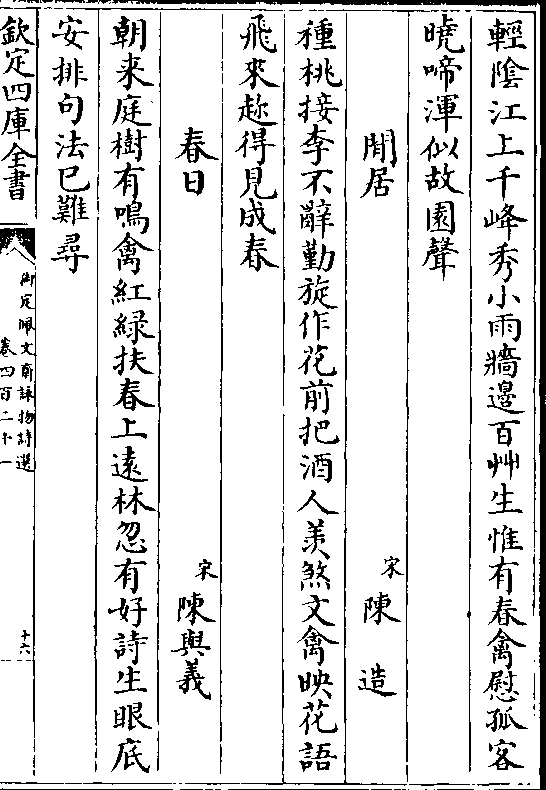 輕陰江上千峰秀小雨牆邊百艸生惟有春禽慰孤客
曉啼渾似故園聲
閒居
宋陳造
種桃接李不辭勤旋作花前把酒人羨煞文禽映花語
飛來趂得見成春
春日
宋陳與義
朝来庭樹有鳴禽紅綠扶春上遠林忽有好詩生眼底
安排句法已難尋
欽定四庫全書
御定佩文齋詠物詩選
卷四百二十一
十六